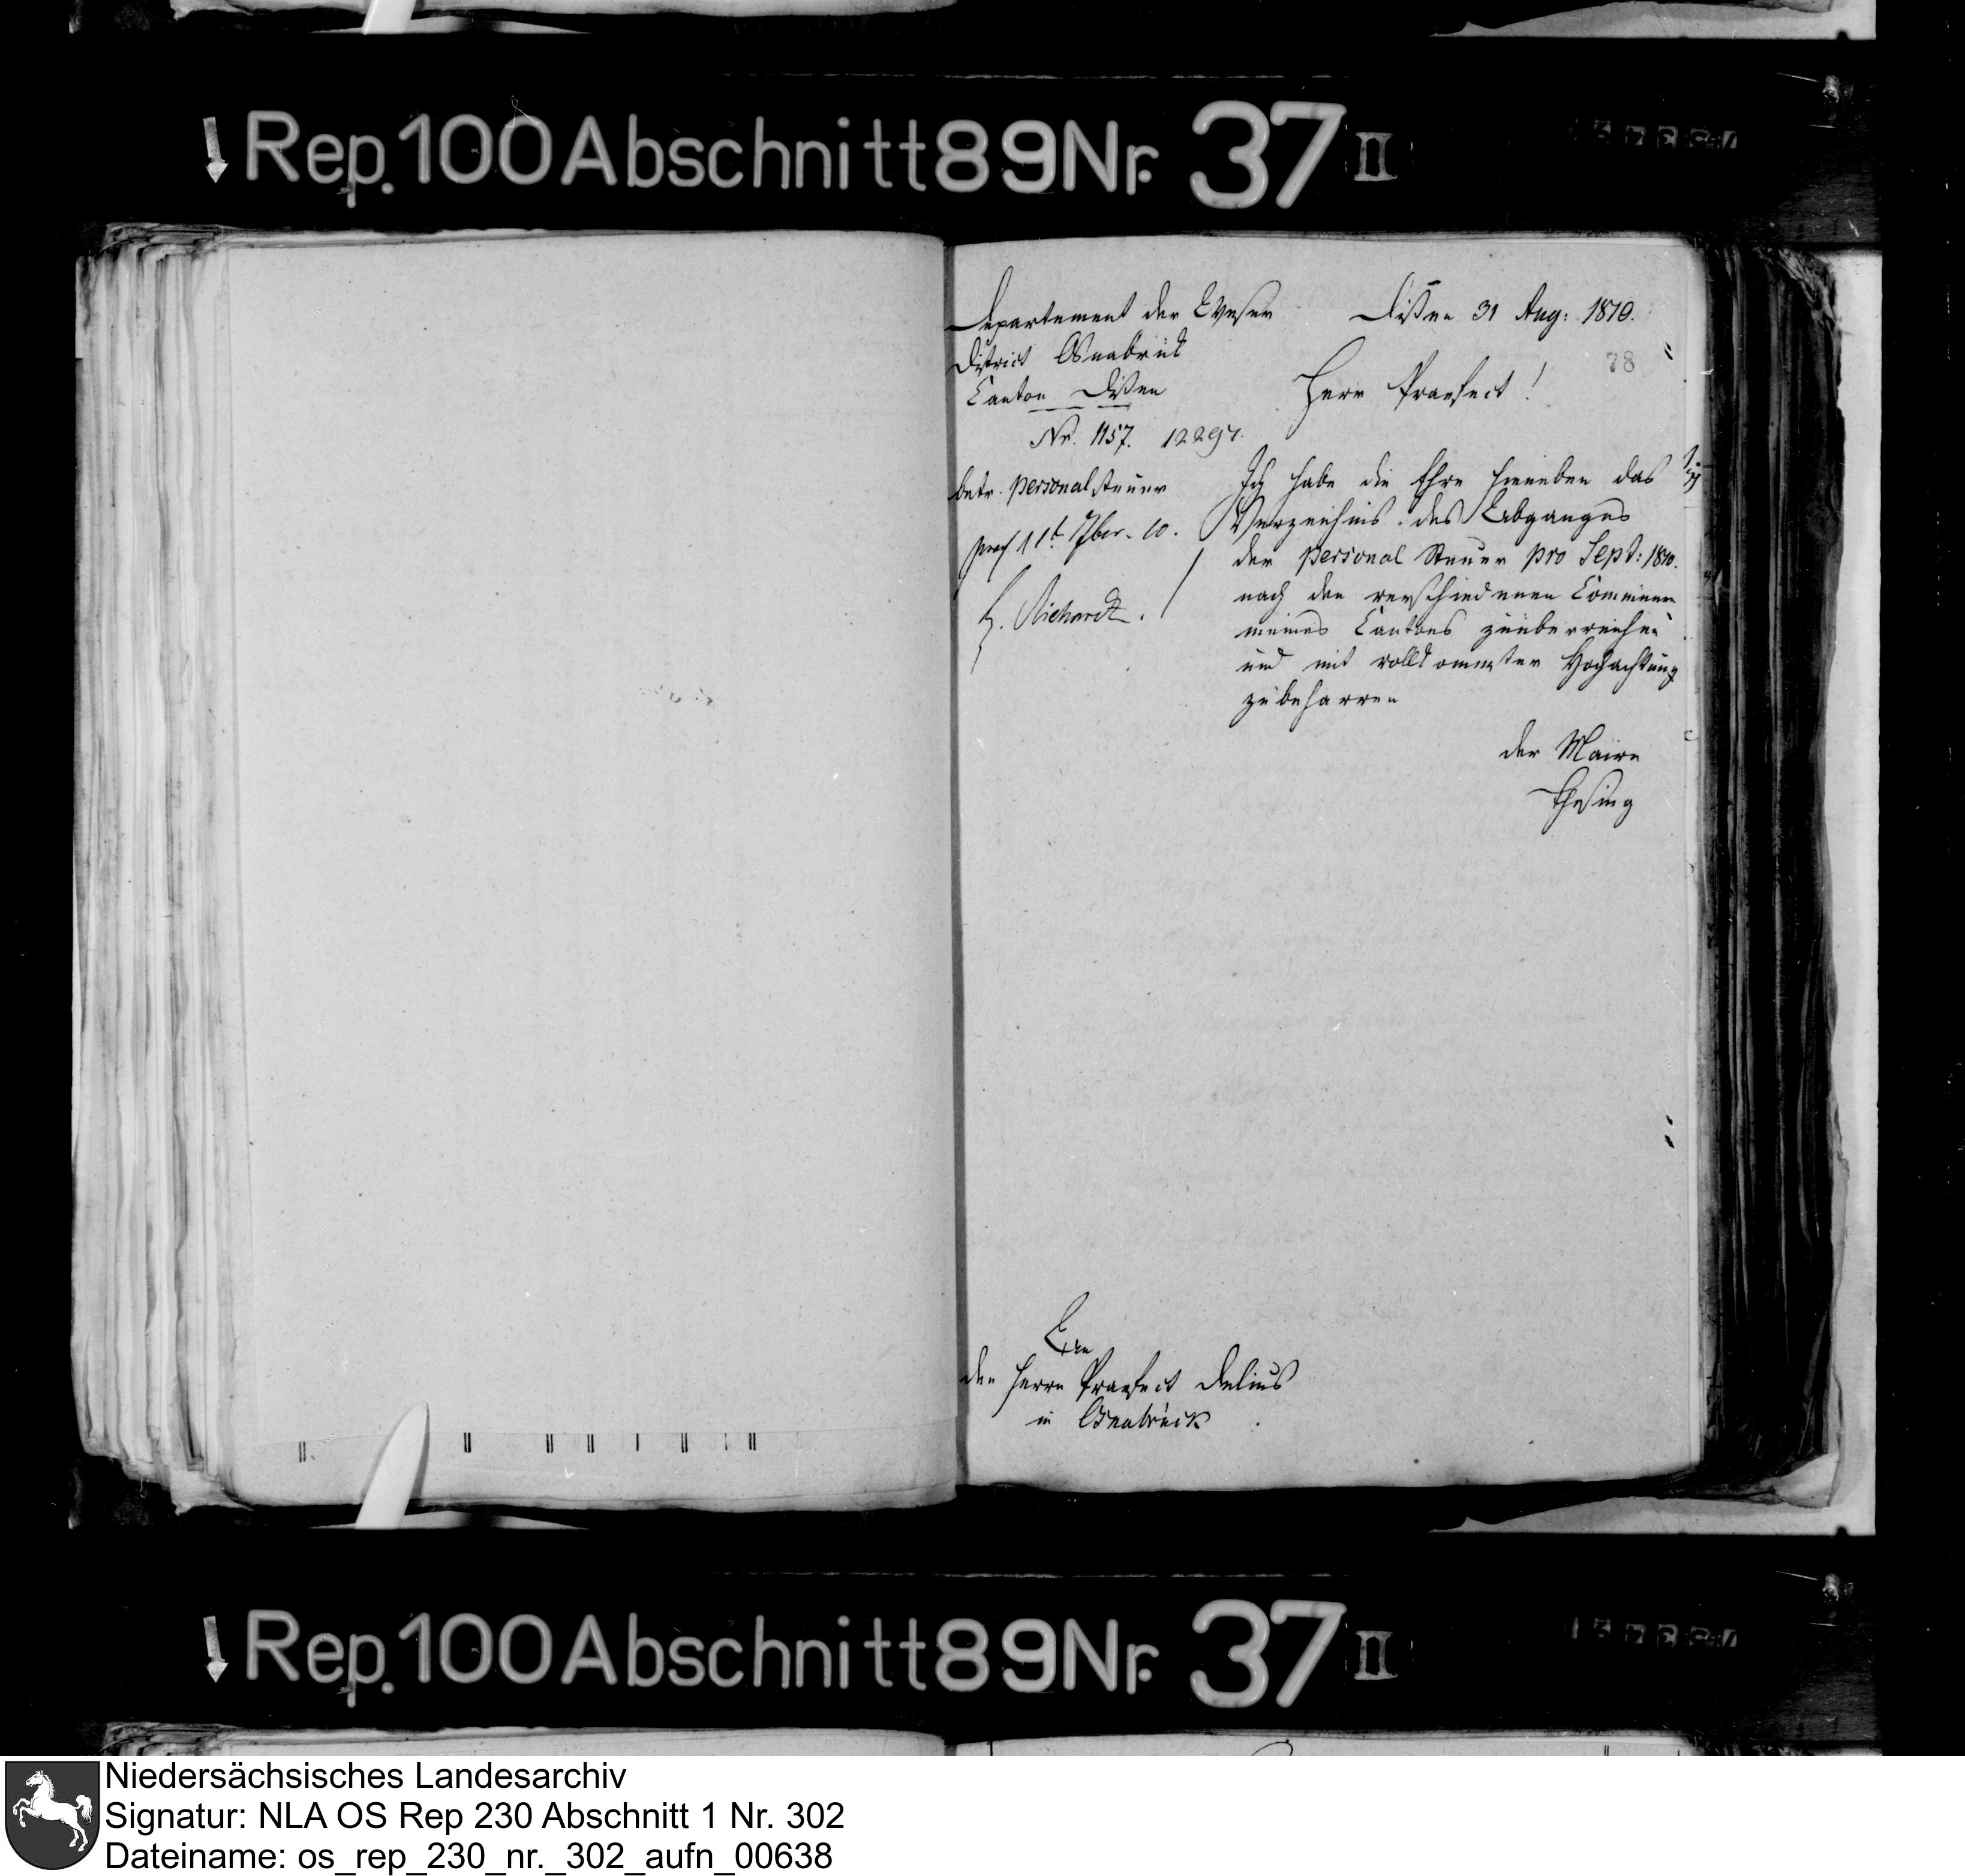 Rep. 100 Abschnitt 89 Nr. 37 II
Departement der Weser
District Osnabrück
Canton Dißen
Nr. 1157. 12297.
betr. Personalsteuer
1t 7ber. 10.
Richard
Dißen 31 Aug: 1810.
78
Herr Praefect!
Ich habe die Ehre hieneben das
Verzeichnis des Abganges
der Personal Steuer pro Sept: 1810.
nach den verschiedenen Communen
meines Cantons zu überreichen
und mit vollkommster Hochachtung
zu beharren
der Maire
Thesing
An
den Herrn Praefect Delius
in Osnabrück
Rep. 100 Abschnitt 89 Nr. 37 II
Niedersächsisches Landesarchiv
Signatur: NLA OS Rep 230 Abschnitt 1 Nr. 302
Dateiname: os_rep_230_nr._302_aufn_00638